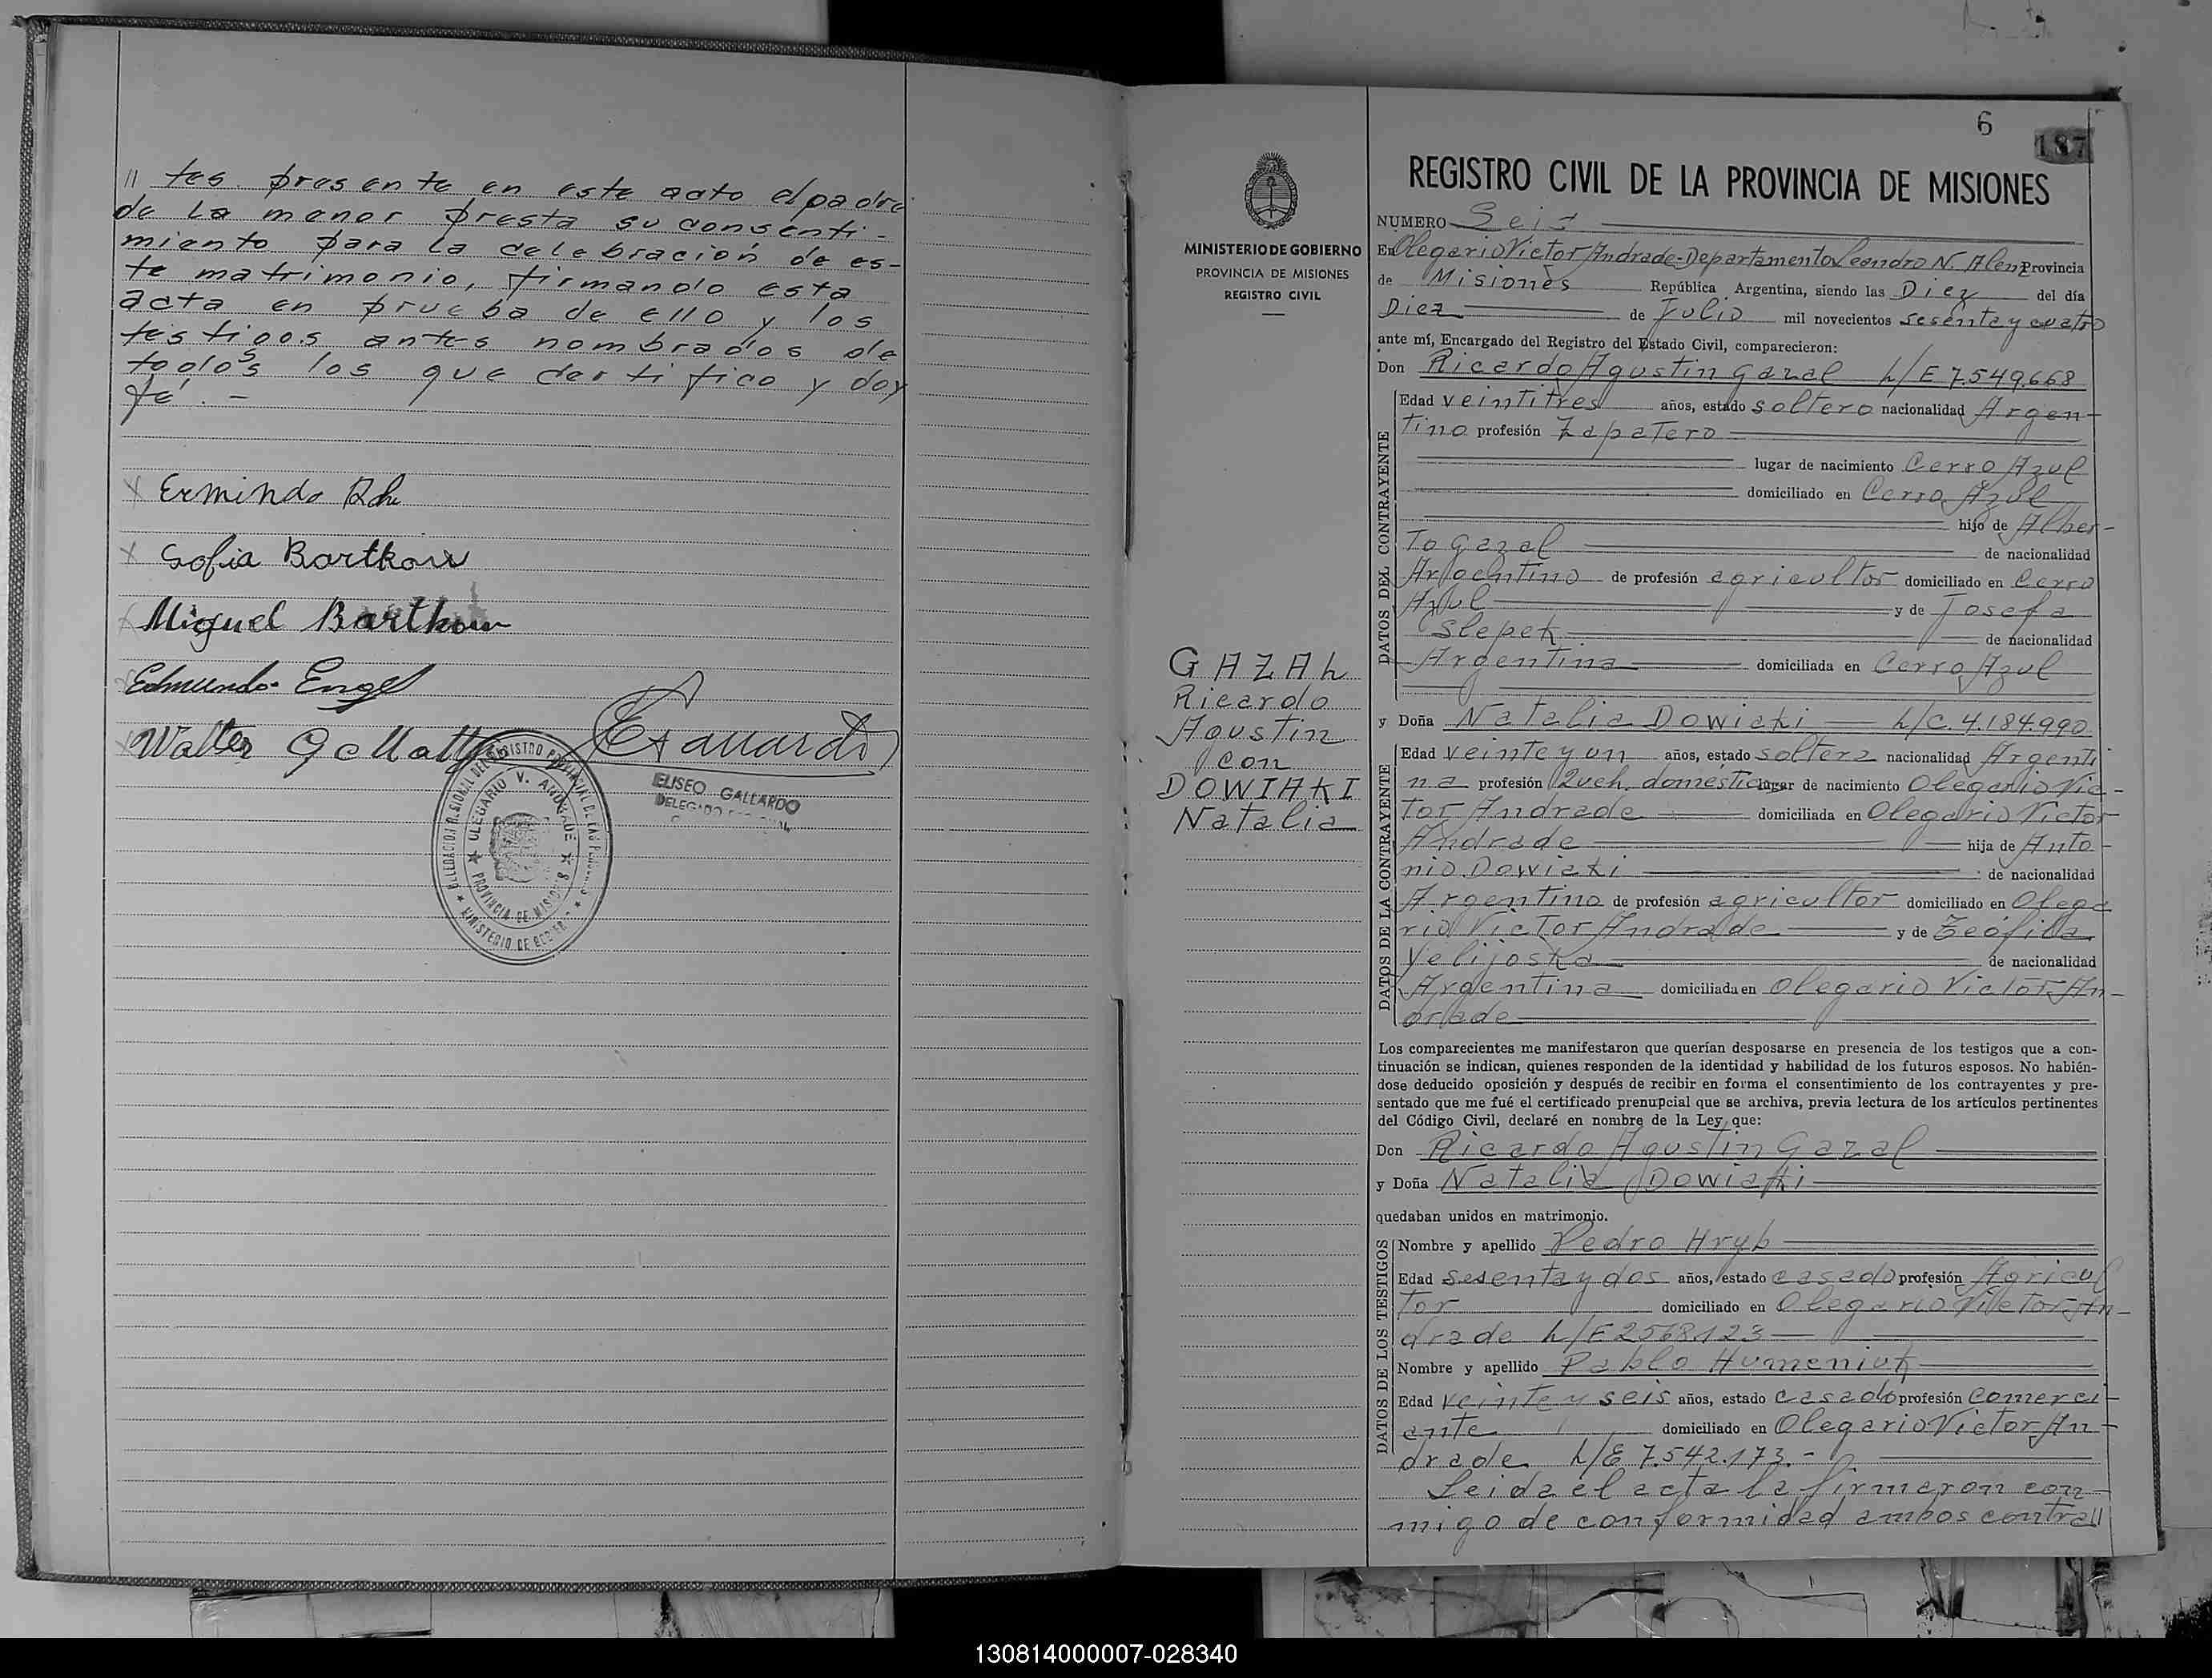 // tes. presente en este acto el padre
de la menor presta su consenti-
miento para la celebración de es-
te matrimonio, firmando esta
acta en prueba de ello y los
testigos antes nombrados de
todos los que certifico y doy
fé. -
Ermindo
Sofia Bartkow
Miguel Bartkow
Edmundo Engel
Walter
ELISEO GALLARDO
OLEGARIO V. ANDRADE
PROVINCIA DE MISIONES
MINISTERIO DE GOBIERNO
MINISTERIO DE GOBIERNO
PROVINCIA DE MISIONES
REGISTRO CIVIL
GAZAL
Ricardo
Agustin
con
DOWIAKI
Natalia
6
187
REGISTRO CIVIL DE LA PROVINCIA DE MISIONES
NUMERO Seis
En Olegario Victor Andrade-Departamento Leandro N. Alem Provincia
de Misiones República Argentina, siendo las Diez del día
Diez de Julio mil novecientos sesenta y cuatro
ante mí, Encargado del Registro del Estado Civil, comparecieron:
Don Ricardo Agustin Gazal L/E 7.549.668
DATOS DEL CONTRAYENTE
Edad veintitres años, estado soltero nacionalidad Argen-
tino profesión Zapatero
lugar de nacimiento Cerro Azul
domiciliado en Cerro Azul
hijo de Alber-
to Gazal de nacionalidad
Argentino de profesión agricultor domiciliado en Cerro
Azul y de Josefa
Slepek de nacionalidad
Argentina domiciliada en Cerro Azul
y Doña Natalia Dowiaki L/C. 4.184.990
DATOS DE LA CONTRAYENTE
Edad veinte y un años, estado soltera nacionalidad Argenti
na profesión Queh. domestic lugar de nacimiento Olegario Vic-
tor Andrade domiciliada en Olegario Victor
Andrade hija de Anto-
nio Dowiaki de nacionalidad
Argentino de profesión agricultor domiciliado en Olega
rio Victor Andrade y de Zeófila
Velijoska de nacionalidad
Argentina domiciliada en Olegario Victor An-
drade
Los comparecientes me manifestaron que querían desposarse en presencia de los testigos que a con-
tinuación se indican, quienes responden de la identidad y habilidad de los futuros esposos. No habién-
dose deducido oposición y después de recibir en forma el consentimiento de los contrayentes y pre-
sentado que me fué el certificado prenupcial que se archiva, previa lectura de los artículos pertinentes
del Código Civil, declaré en nombre de la Ley, que:
Don Ricardo Agustin Gazal
y Doña Natalia Dowiaki
quedaban unidos en matrimonio.
DATOS DE LOS TESTIGOS
Nombre y apellido Pedro Hryb
Edad sesenta y dos años, estado casado profesión Agricul
tor domiciliado en Olegario Victor An-
drade L/E 2568123
Nombre y apellido Pablo Humeniuk
Edad veinte y seis años, estado casado profesión comerci-
ante domiciliado en Olegario Victor An-
drade L/E 7.542.173.-
Leida el acta la firmaron con-
migo de conformidad ambos contra//
130814000007-028340